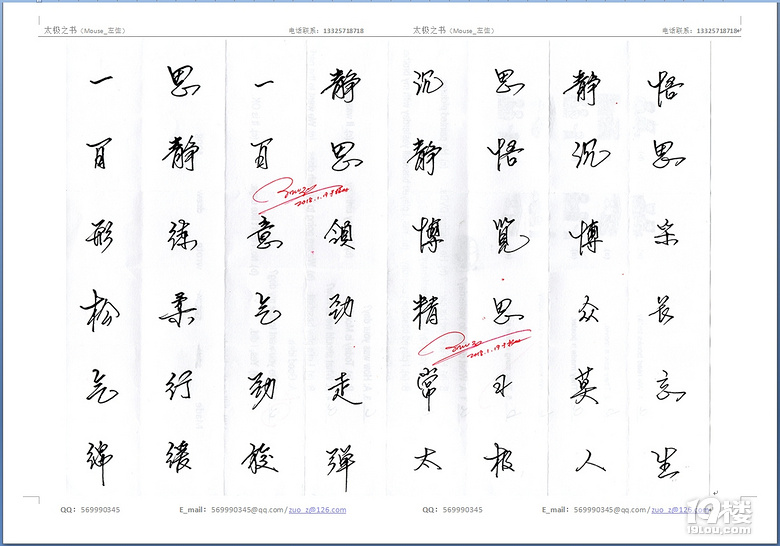 太极之书（Mouse_左弦） 电话联系：13325718718
太极之书（Mouse_左弦） 电话联系：13325718718
一思一静
百静百思
形练意领
松柔气劲
气行劲走
绵缓旋弹
2018.1.19
沉思静悟
静悟沉思
博览博采
精思众长
常习莫忘
太极人生
2018.1.19
QQ：569990345 E_mail：569990345@qq.com/zuo_z@126.com
QQ：569990345 E_mail：569990345@qq.com/zuo_z@126.com
19楼
19lou.com